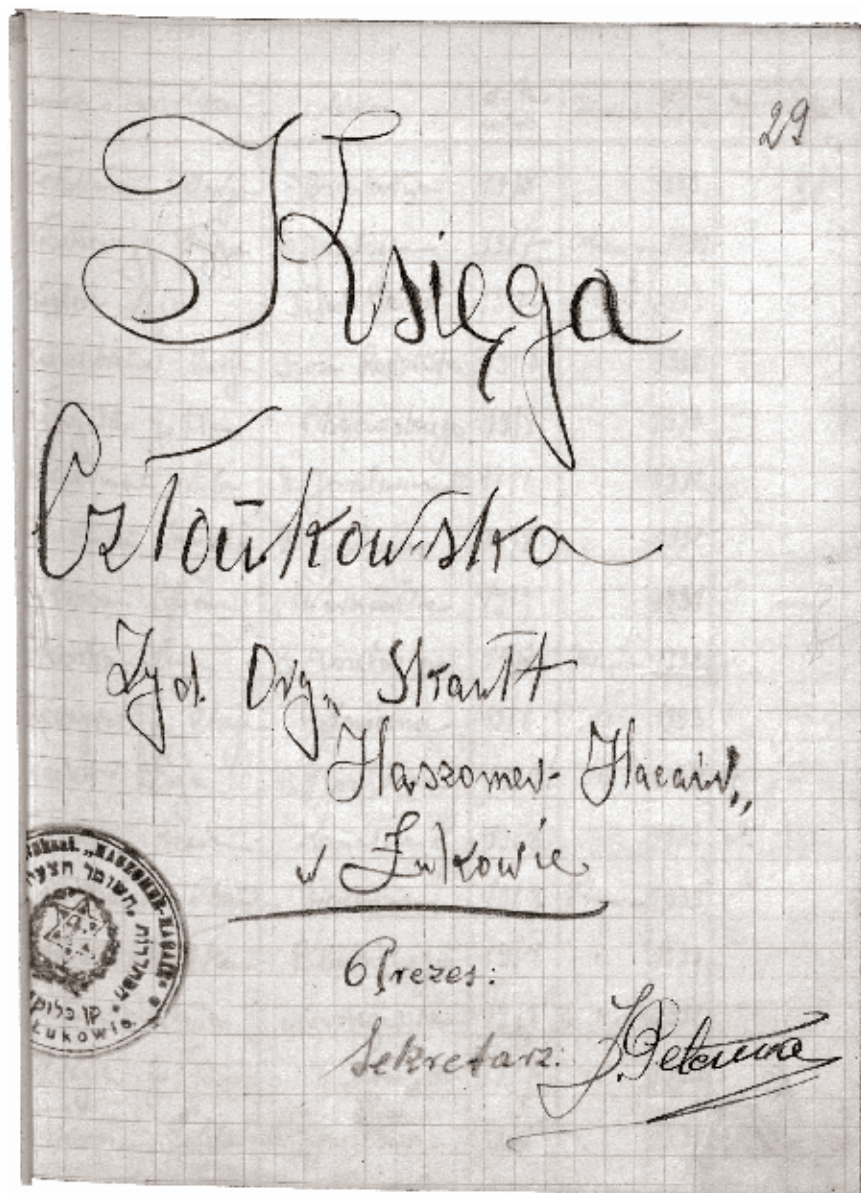 29
Księga
Członkowska
Żyd. Org. Skaut
„Haszomer-Hacair„
w Łukowie
Prezes:
Sekretarz:
"HASZOMER-HACAIR" w
הסתדרות "השומר הצעיר
קן בלוקוב
Łukowie